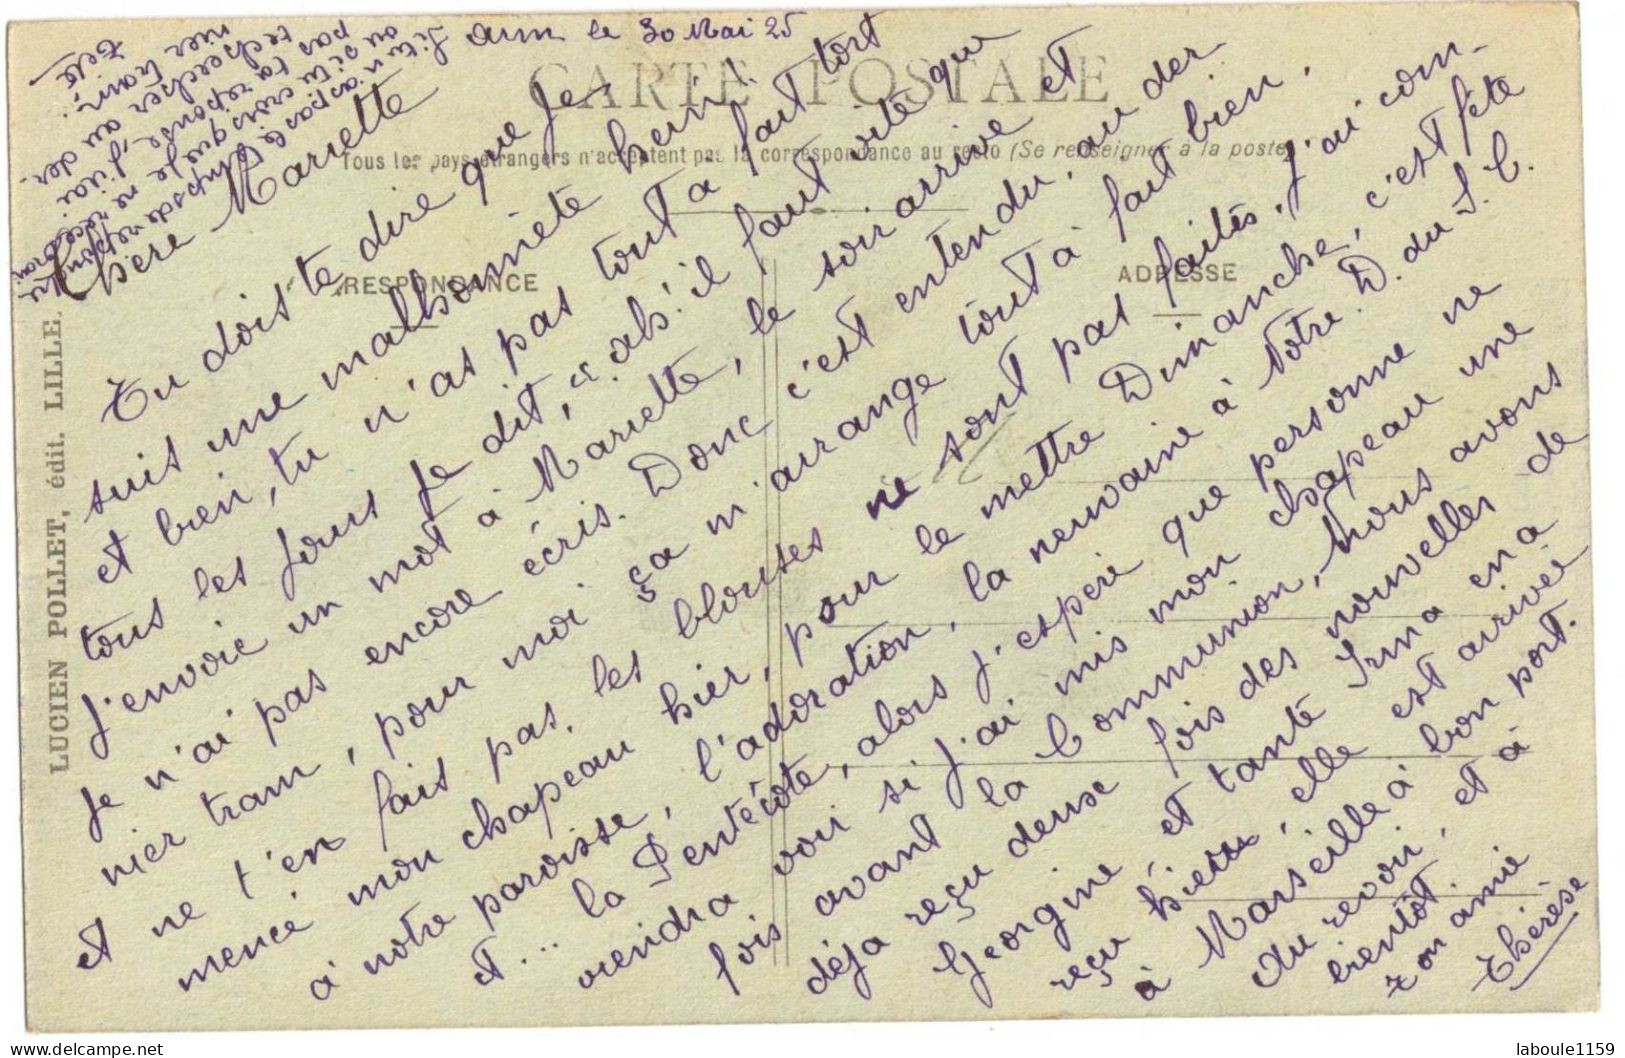 dim le 30 Mai 25
CARTE POSTALE
Tous les pays étrangers n'acceptent pas la correspondance au recto (Se renseigner à la poste)
RESPONDANCE
ADRESSE
LUCIEN POLLET, édit. LILLE.
Chère Mariette
Tu dois te dire que je
suis une malhonnête hein!
et bien, tu n'as pas tout à fait tort
tous les jours je dit, "ah! il faut vite que
j'envoie un mot à Mariette, le soir arrive et
je n'ai pas encore écris. Donc c'est entendu, au der-
nier tram, pour moi ça m'arrange tout à fait bien,
et ne t'en fais pas, les blouses ne sont pas faites, j'ai com-
mencé mon chapeau hier, pour le mettre Dimanche, c'est fête
à notre paroisse, l'adoration, la neuvaine à Notre. D. du S. C.
et .. la Pentecôte, alors j'espère que personne ne
viendra voir si j'ai mis mon chapeau une
fois avant la Communion, Nous avons
déja reçu deux fois des nouvelles de
Georgine et tante Irma en a
reçu hier, elle est arrivée
à Marseille à bon port.
Au revoir, et à
bientôt.
Ton amie
Thérèse
Si tu n'as pas le temps de
ou si tu crois que je ne
pas ta réponse, j'irai
rechercher au der-
nier train